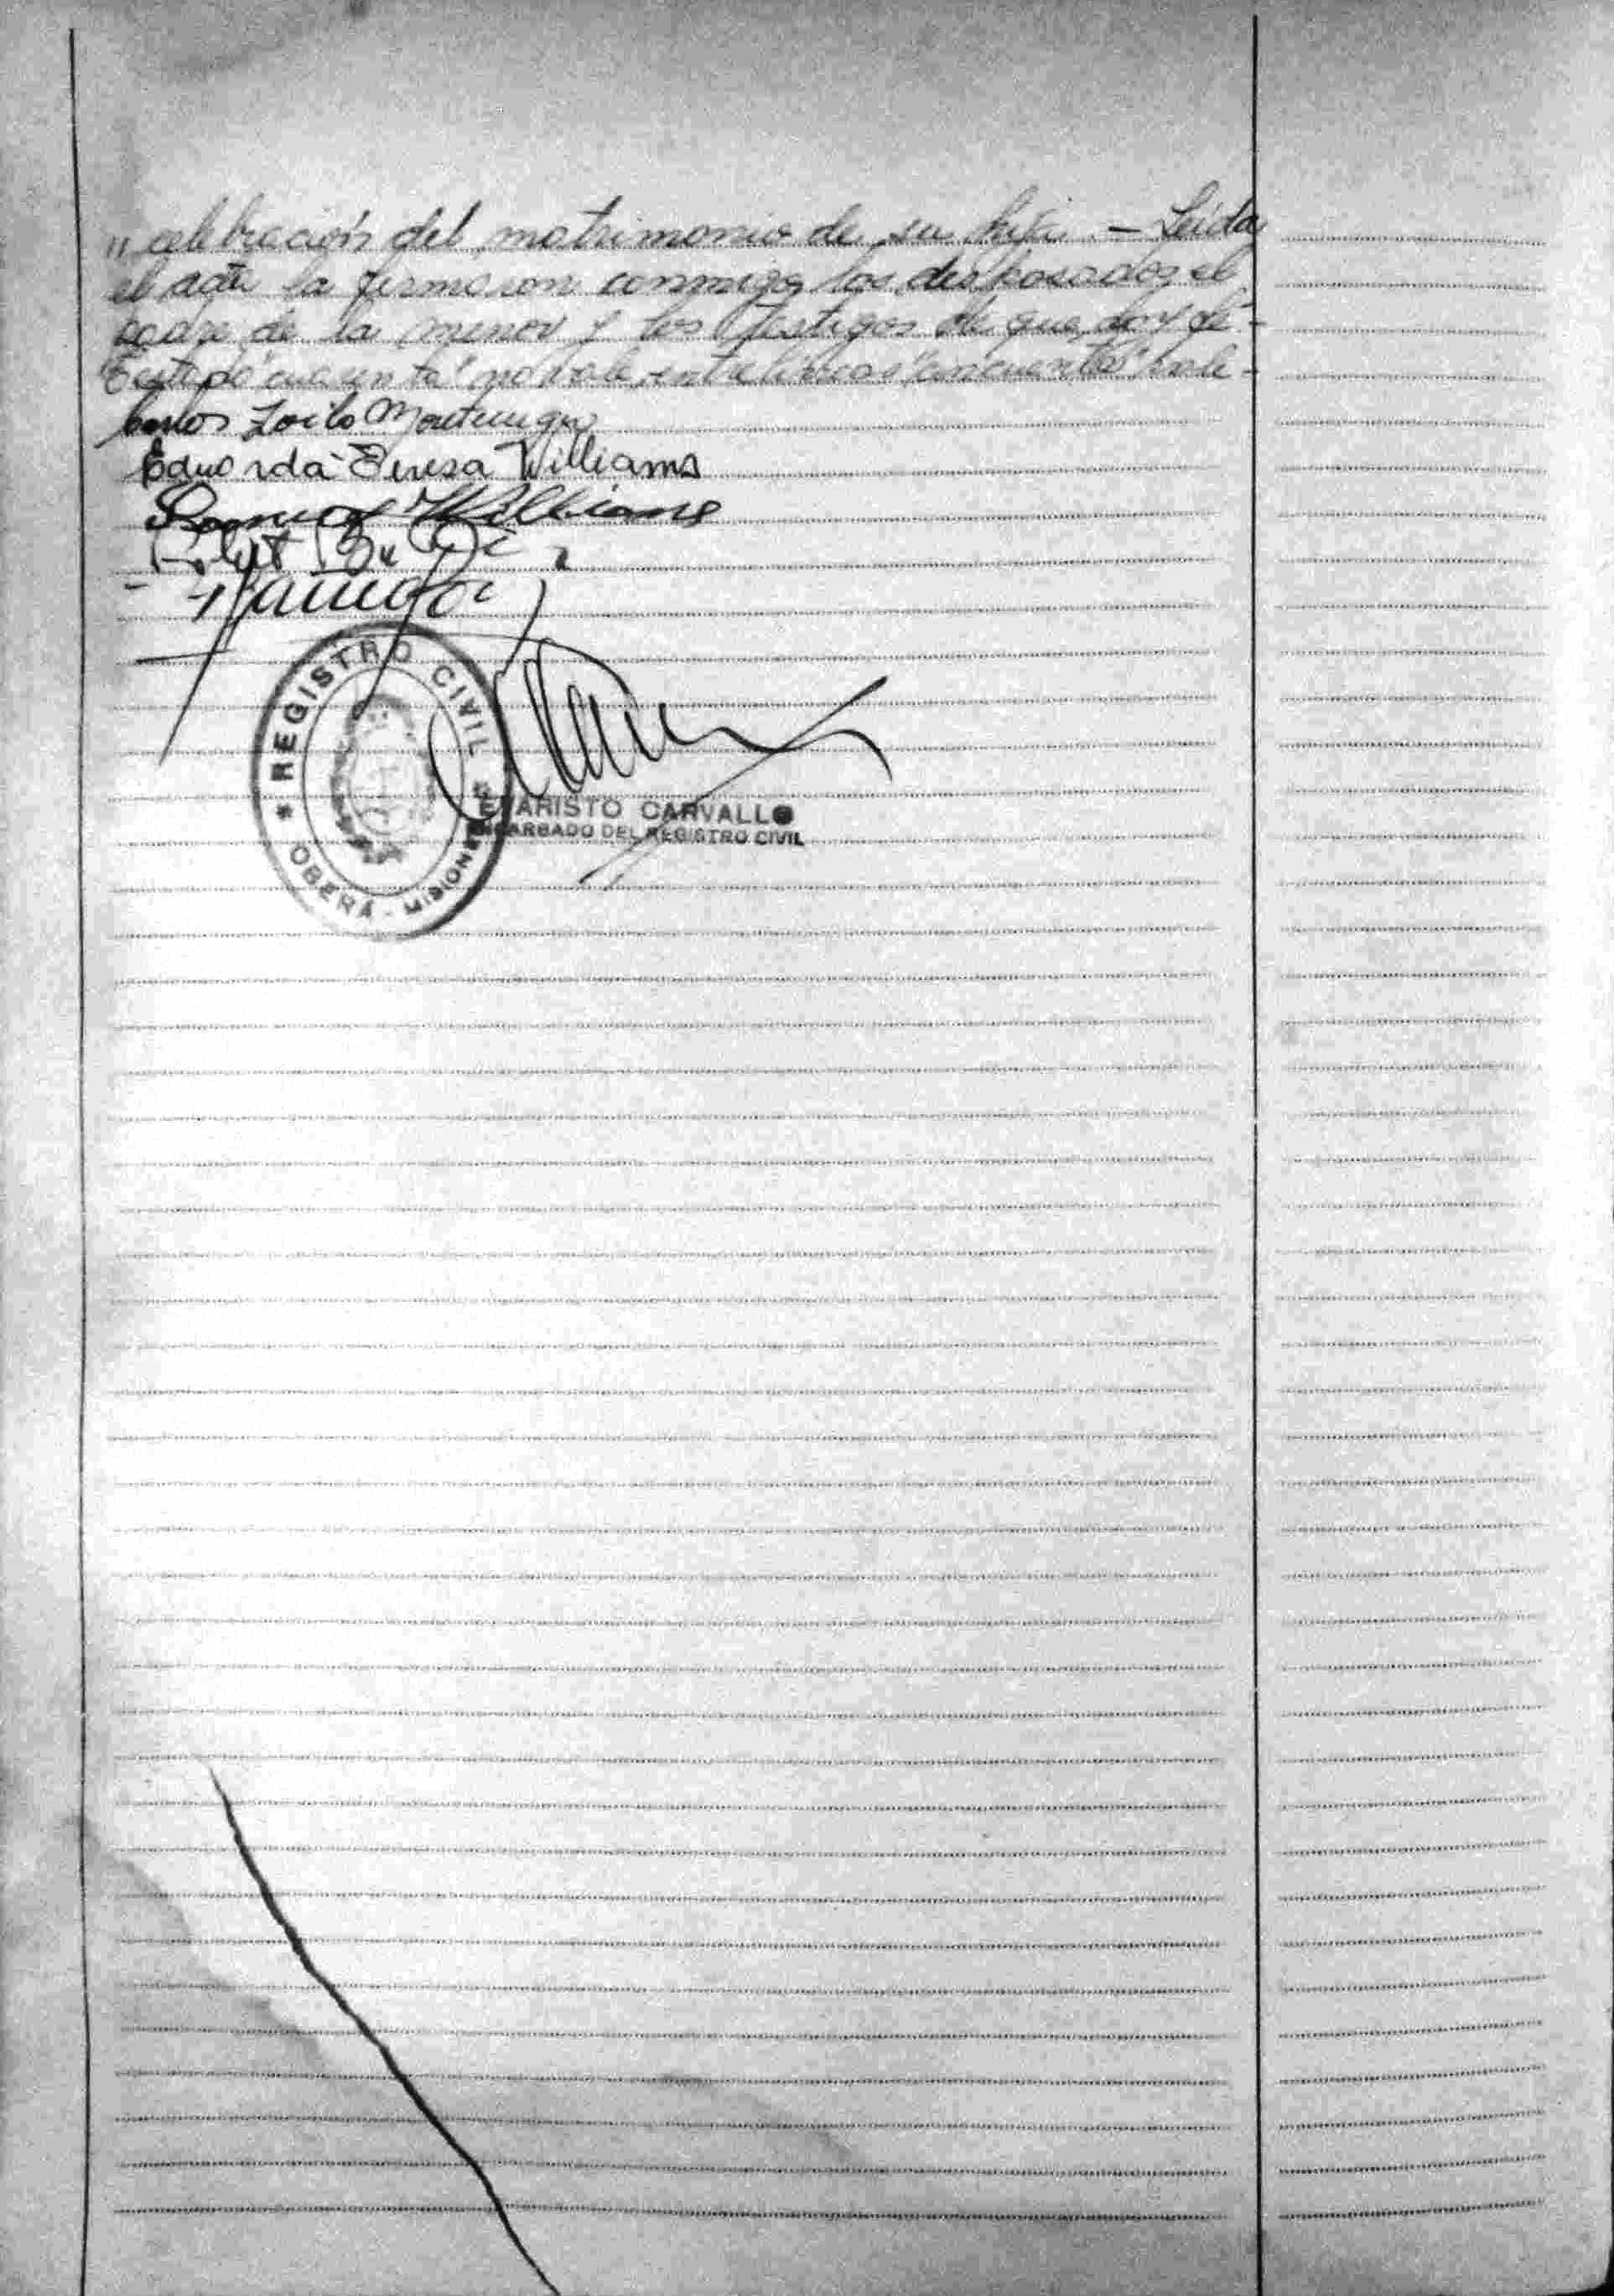 " celebración del matrimonio de su hija. — Leída
el acta la firmaron conmigo los desposados, el
padre de la menor y los testigos de que doy fé -
Testado "cuarenta" no vale, entrelíneas "cincuenta" vale -
Carlos Zoilo Montenegro
Eduarda Teresa Williams
Williams
REGISTRO CIVIL
OBERÁ - MISIONES
EVARISTO CARVALLO
ENCARGADO DEL REGISTRO CIVIL